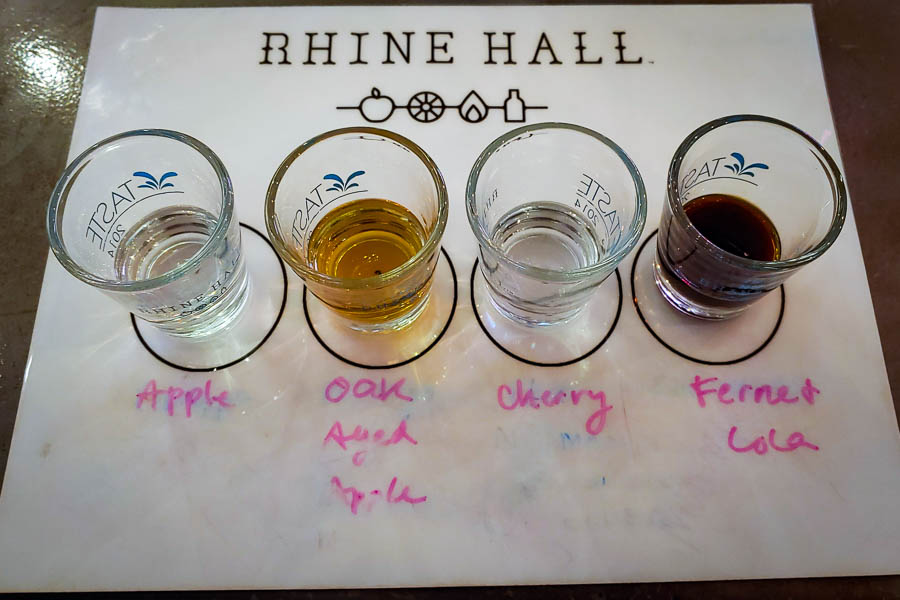 RHINE HALL
TASTE
2014
RHINE HALL
TASTE
TASTE
2014
TASTE
Apple
Oak
Aged
Apple
Cherry
Fernet
Lola